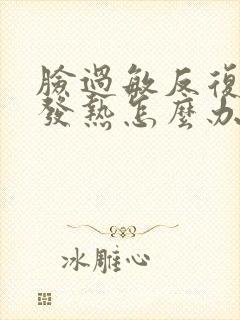 臉過敏反復
發熱怎麼办
冰雕心